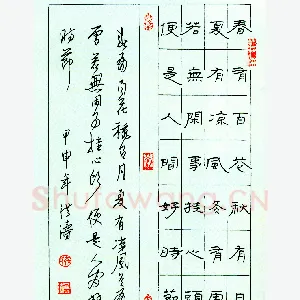 春有百花秋有月
夏有凉風冬有
若無閑事挂心頭
便是人間好時節
春有百花穐有月夏有凉風冬有
雪若無閑事挂心頭便是人間好
時節
甲申年
Shufawang.CN